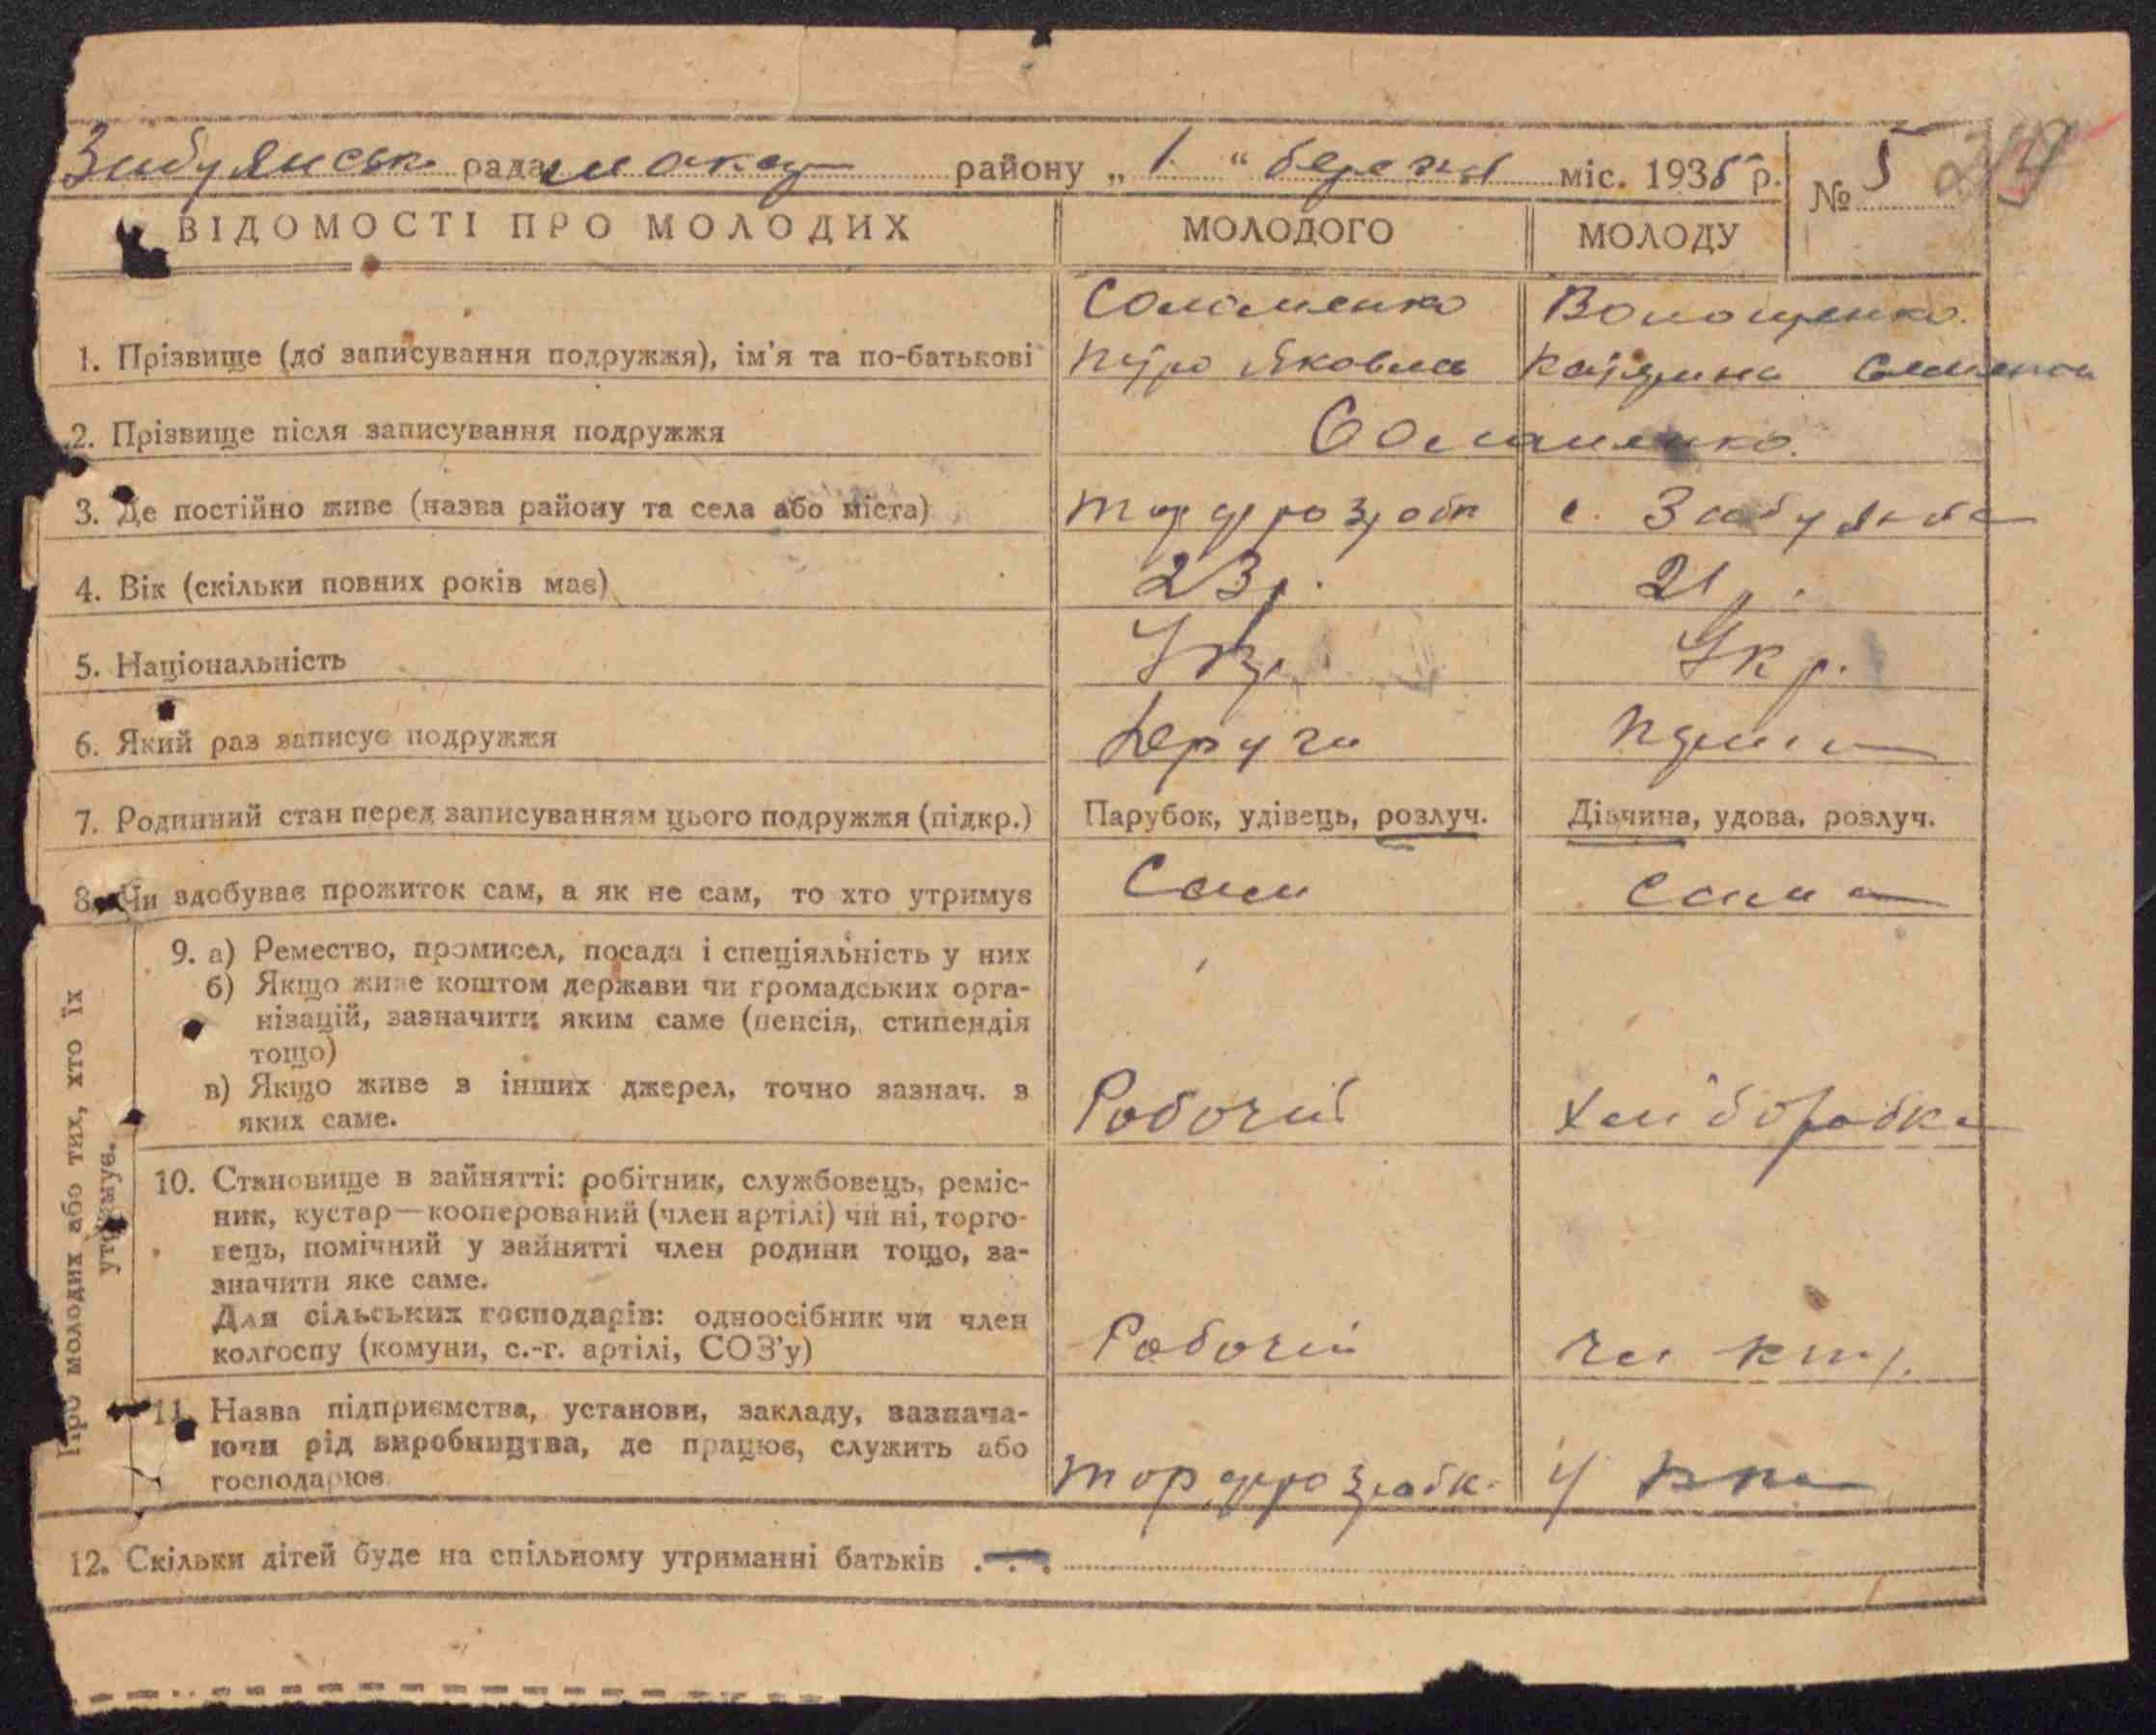 рада району „ 1 “ березня міс. 1935 р.
№ 5
ВІДОМОСТІ ПРО МОЛОДИХ МОЛОДОГО МОЛОДУ
Волощенко
1. Прізвище (до записування подружжя), ім'я та по-батькові Петро Яковл Катерина
2. Прізвище після записування подружжя
3. Де постійно живе (назва району та села або міста) торфрозробк с.
4. Вік (скільки повних років має) 23 р. 21 р.
5. Національність Укр. Укр.
6. Який раз записує подружжя Други
7. Родинний стан перед записуванням цього подружжя (підкр.) Парубок, удівець, розлуч. Дівчина, удова, розлуч.
8. Чи здобуває прожиток сам, а як не сам, то хто утримує Сам сама
Про молодих або тих, хто їх утримує.
9. а) Ремество, промисел, посада і спеціяльність у них
б) Якщо живе коштом держави чи громадських орга-
нізацій, зазначити яким саме (пенсія, стипендія
тощо)
в) Якщо живе з інших джерел, точно зазнач. з
яких саме. Робочий хліборобка
10. Становище в зайнятті: робітник, службовець, реміс-
ник, кустар—кооперований (член артілі) чи ні, торго-
вець, помічний у зайнятті член родини тощо, за-
значити яке саме.
Для сільських господарів: одноосібник чи член
колгоспу (комуни, с.-г. артілі, СОЗ'у) Робочий
11. Назва підприємства, установи, закладу, зазнача-
ючи рід виробництва, де працює, служить або
господарює. торфрозробк. У
12. Скільки дітей буде на спільному утриманні батьків . . .